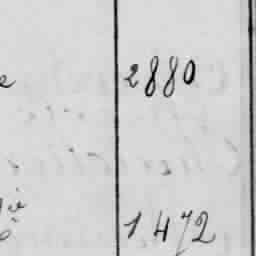 2880
1472